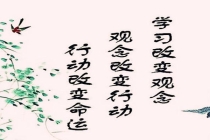 学习改变观念
观念改变行动
行动改变命运